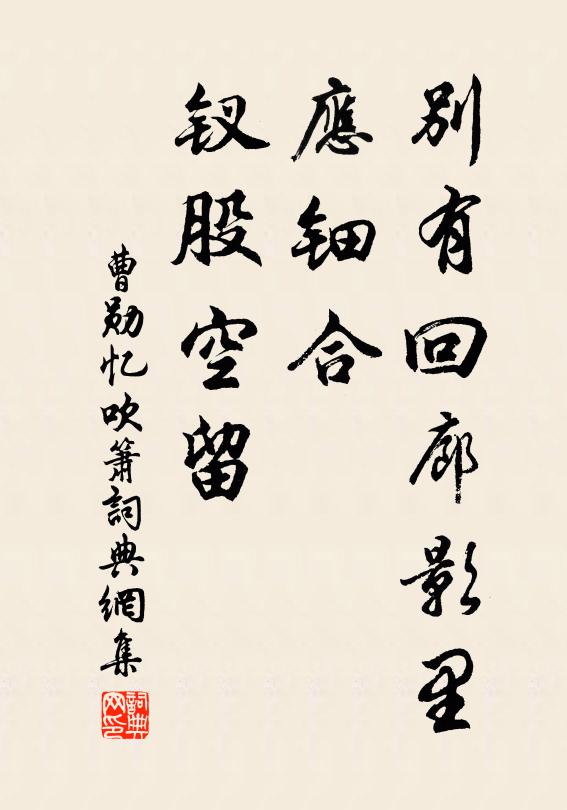 別有回廊影里
應钿合
钗股空留
曹勛忆吹簫詞典網集
詞典网印